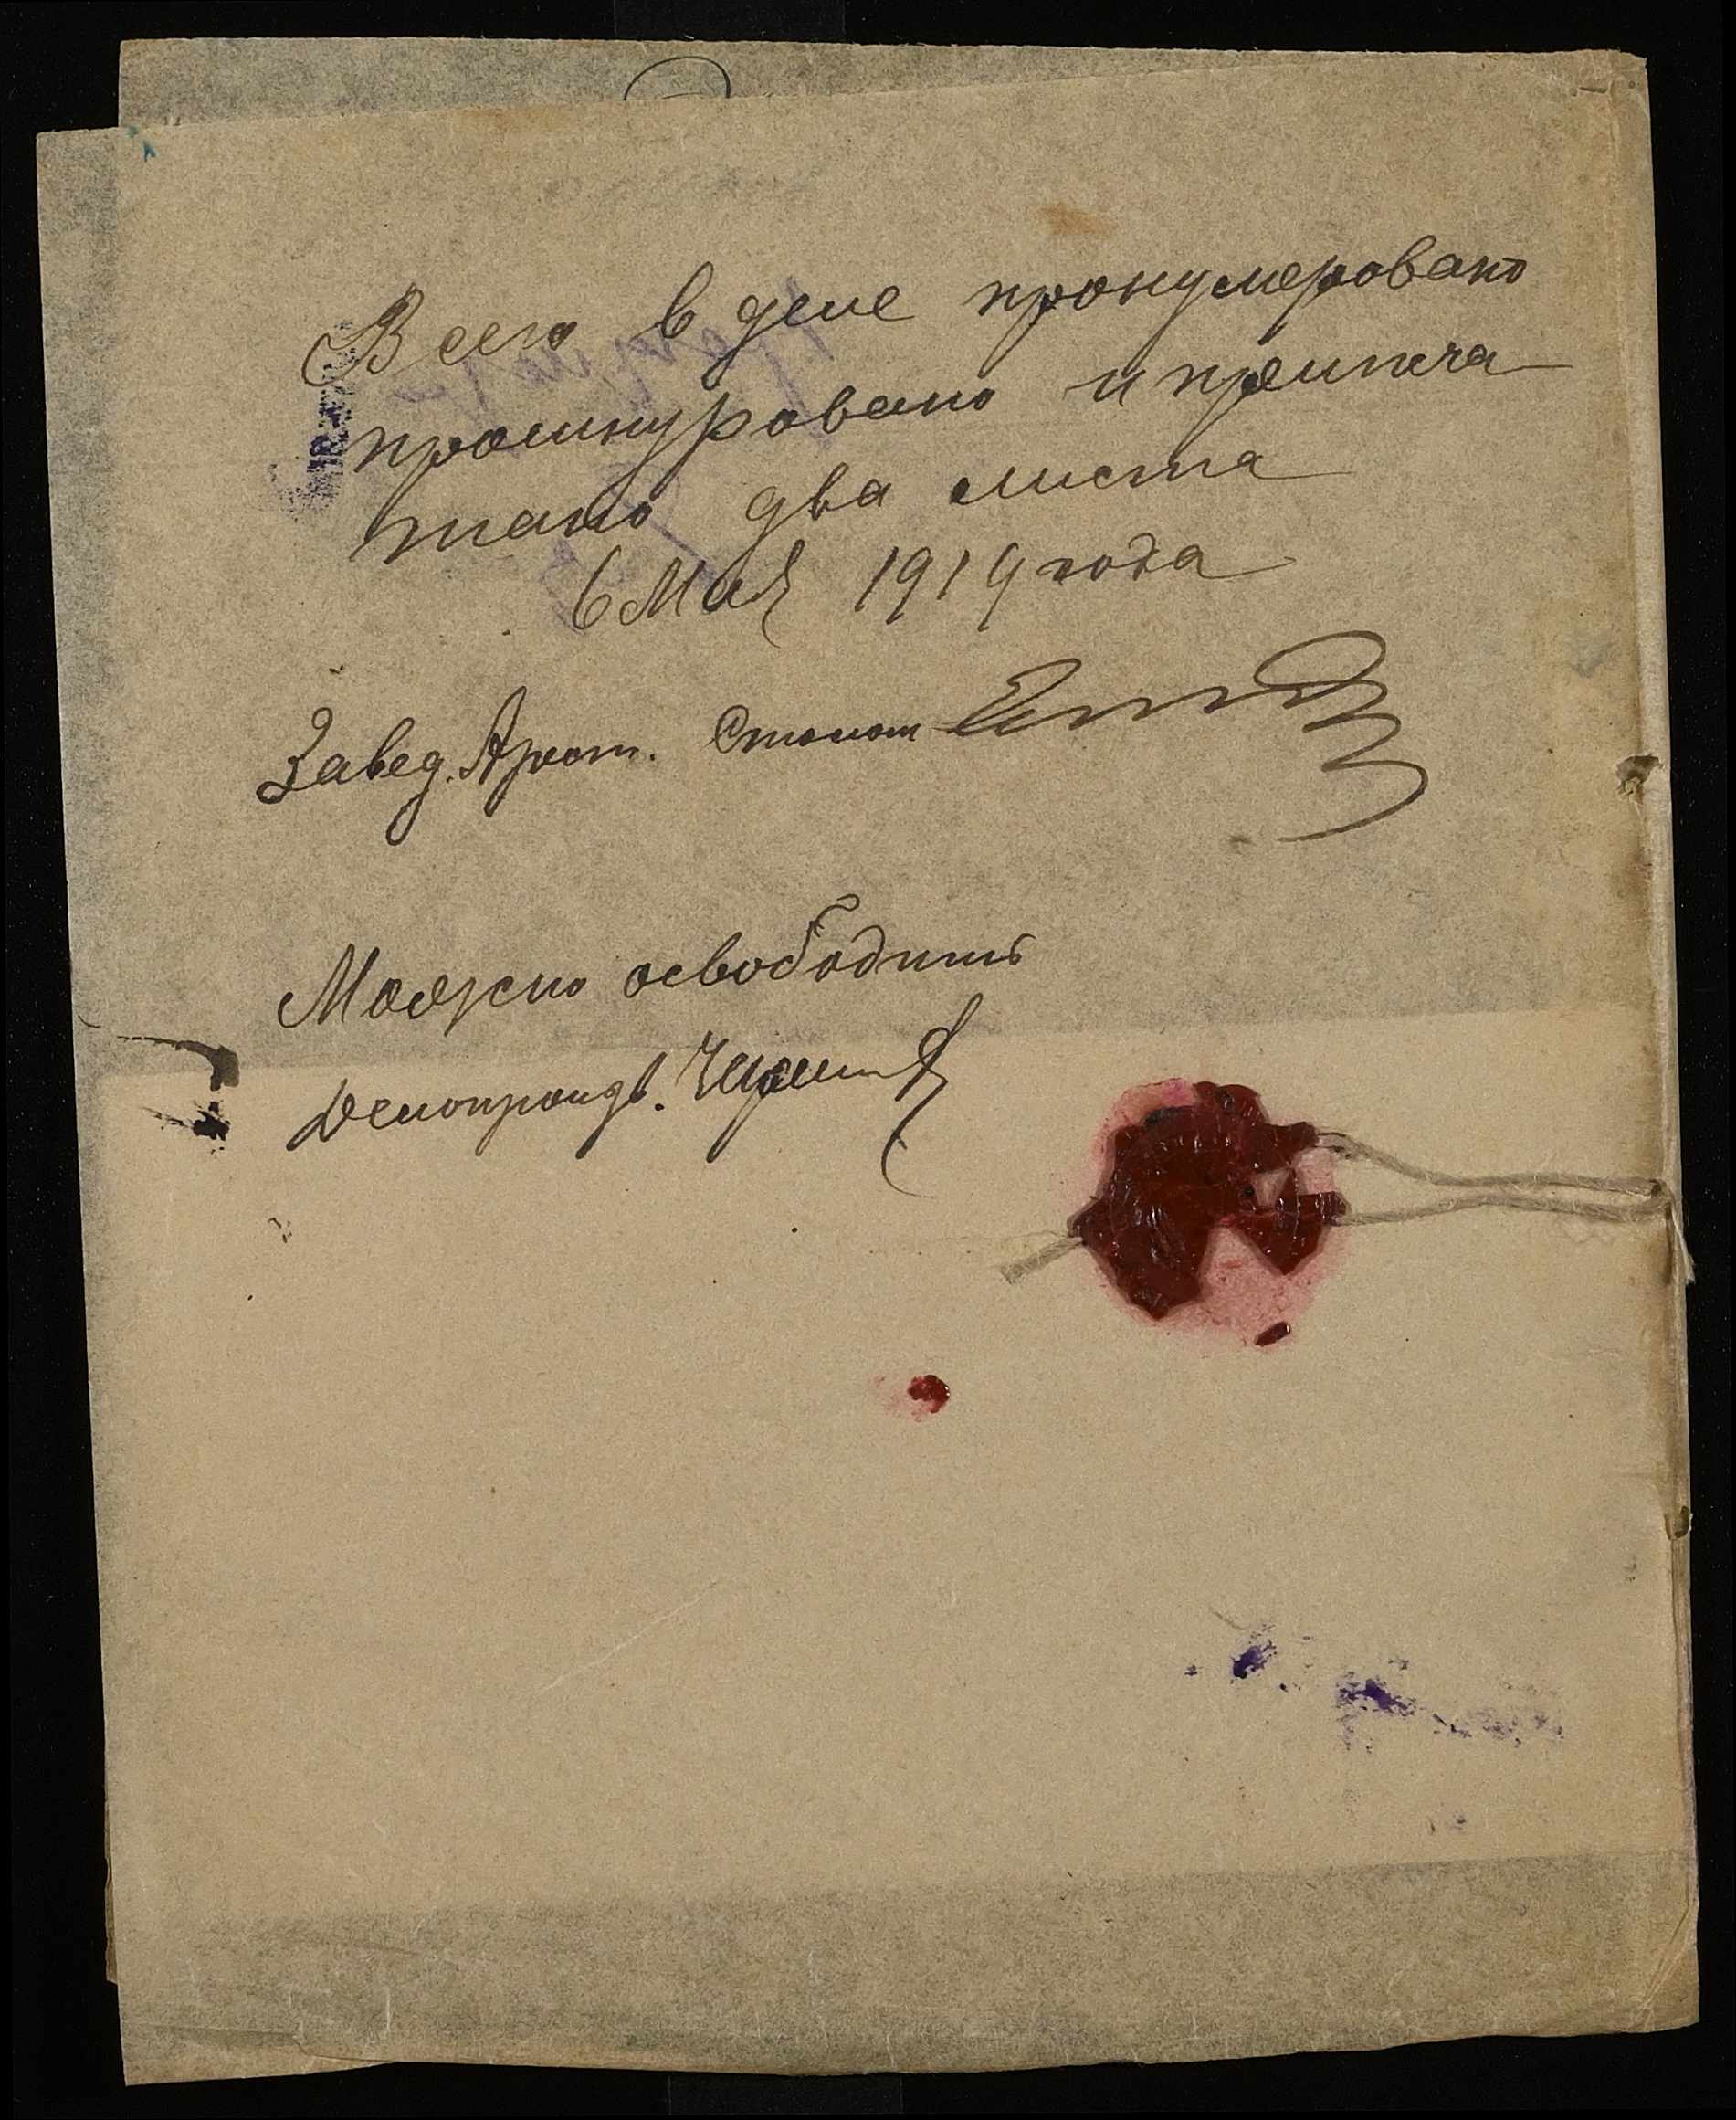 Всего в деле пронумеровано
прошнуровано и припеча
тано два листа
6 Мая 1919 года
Завед. Арест. Столом
Можно освободить
Делопроизв.